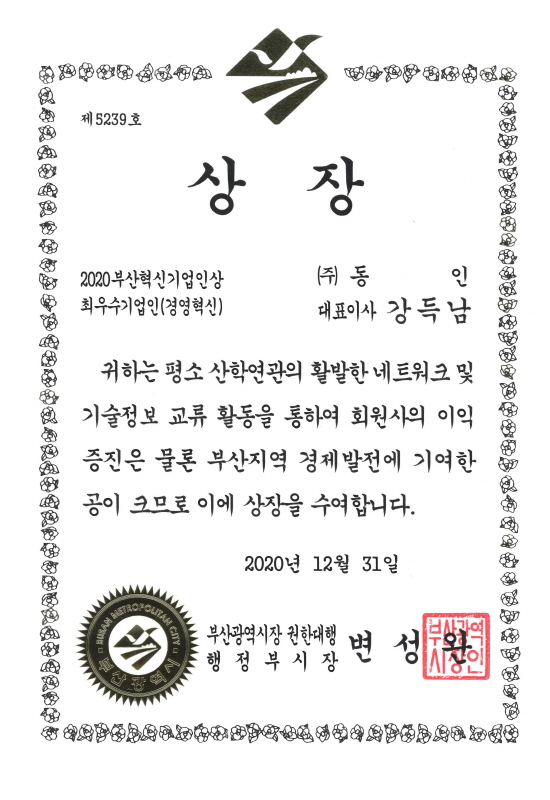 제5239호
상 장
2020부산혁신기업인상
최우수기업인(경영혁신)
(주) 동 인
대표이사 강득남
귀하는 평소 산학연관의 활발한 네트워크 및
기술정보 교류 활동을 통하여 회원사의 이익
증진은 물론 부산지역 경제발전에 기여한
공이 크므로 이에 상장을 수여합니다.
2020년 12월 31일
부산광역시장 권한대행
행정부시장 변성완
부산광역
시장인
BUSAN METROPOLITAN CITY